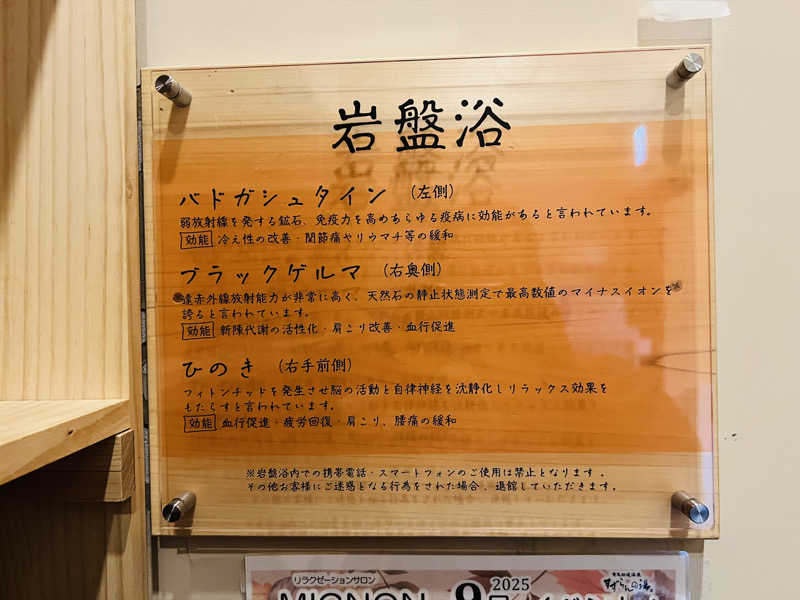 岩盤浴
バドガシュタイン (左側)
弱放射線を発する鉱石、免疫力を高めあらゆる疫病に効能があると言われています。
効能 冷え性の改善・関節痛やリウマチ等の緩和
ブラックゲルマ (右奥側)
遠赤外線放射能力が非常に高く、天然石の静止状態測定で最高数値のマイナスイオンを
誇ると言われています。
効能 新陳代謝の活性化・肩こり改善・血行促進
ひのき (右手前側)
フィトンチッドを発生させ脳の活動と自律神経を沈静化しリラックス効果を
もたらすと言われています。
効能 血行促進・疲労回復・肩こり、腰痛の緩和
※岩盤浴内での携帯電話・スマートフォンのご使用は禁止となります。
その他お客様にご迷惑となる行為をされた場合、退館していただきます。
リラクゼーションサロン
MIGNON 9 2025
すずらんの湯